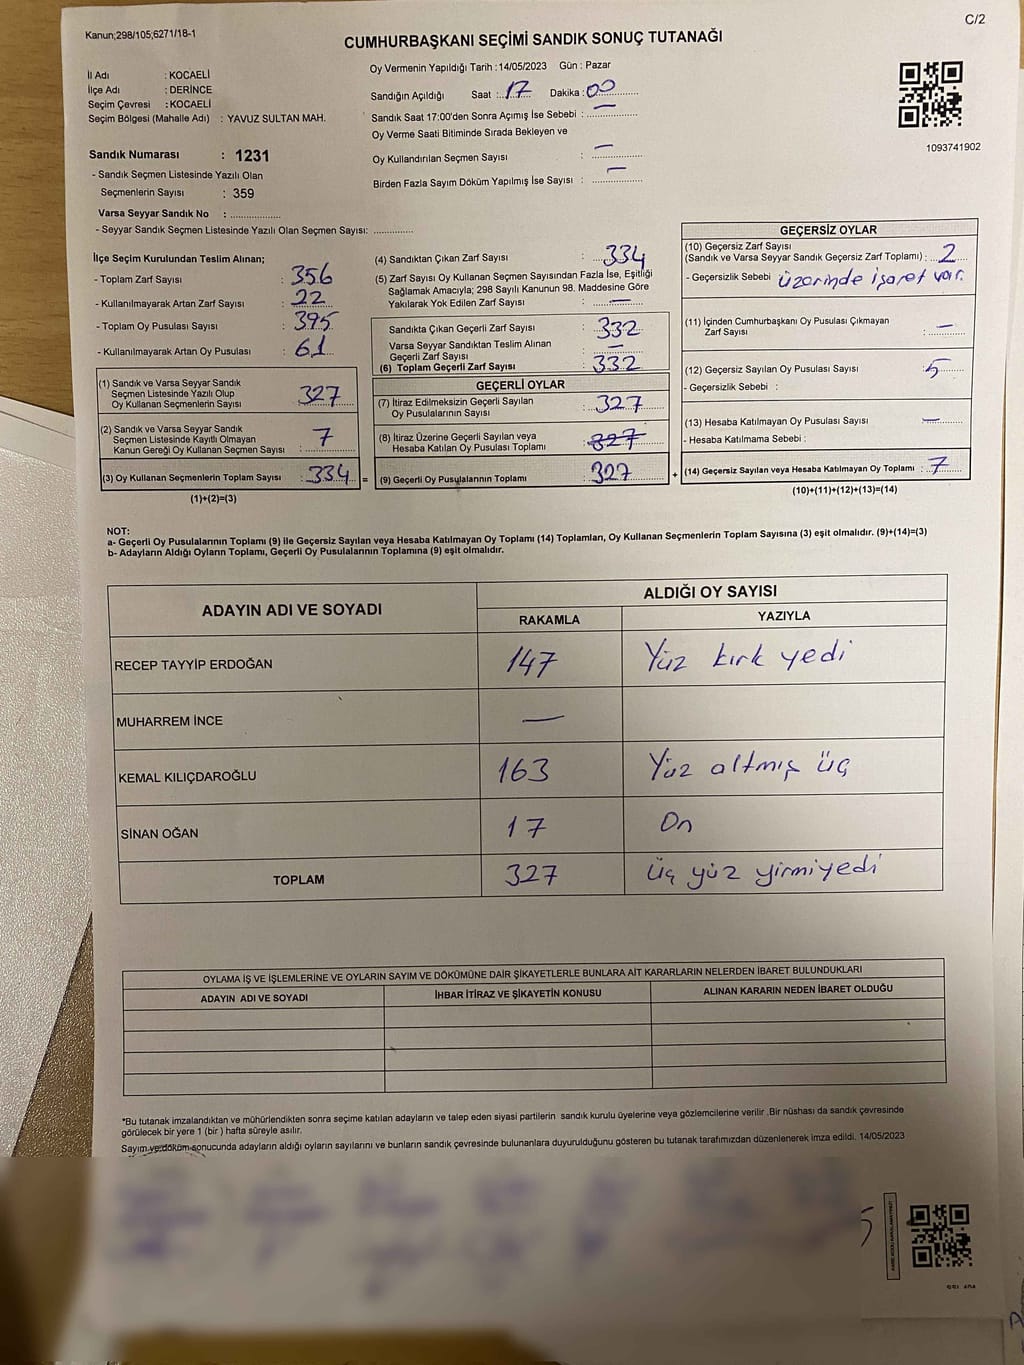 Kanun;298/105;6271/18-1
C/2
CUMHURBAŞKANI SEÇİMİ SANDIK SONUÇ TUTANAĞI
İl Adı : KOCAELİ
İlçe Adı : DERİNCE
Seçim Çevresi : KOCAELİ
Seçim Bölgesi (Mahalle Adı) : YAVUZ SULTAN MAH.
Sandık Numarası : 1231
- Sandık Seçmen Listesinde Yazılı Olan
Seçmenlerin Sayısı : 359
Varsa Seyyar Sandık No : ..................
- Seyyar Sandık Seçmen Listesinde Yazılı Olan Seçmen Sayısı: ..............
Oy Vermenin Yapıldığı Tarih :14/05/2023 Gün : Pazar
Sandığın Açıldığı Saat : 17 Dakika : 00
Sandık Saat 17:00'den Sonra Açımış İse Sebebi : —
Oy Verme Saati Bitiminde Sırada Bekleyen ve
Oy Kullandırılan Seçmen Sayısı : —
Birden Fazla Sayım Döküm Yapılmış İse Sayısı : —
1093741902
İlçe Seçim Kurulundan Teslim Alınan;
- Toplam Zarf Sayısı : 356
- Kullanılmayarak Artan Zarf Sayısı : 22
- Toplam Oy Pusulası Sayısı : 395
- Kullanılmayarak Artan Oy Pusulası : 61
(1) Sandık ve Varsa Seyyar Sandık
Seçmen Listesinde Yazılı Olup
Oy Kullanan Seçmenlerin Sayısı : 327
(2) Sandık ve Varsa Seyyar Sandık
Seçmen Listesinde Kayıtlı Olmayan
Kanun Gereği Oy Kullanan Seçmen Sayısı : 7
(3) Oy Kullanan Seçmenlerin Toplam Sayısı : 334 =
(1)+(2)=(3)
(4) Sandıktan Çıkan Zarf Sayısı : 334
(5) Zarf Sayısı Oy Kullanan Seçmen Sayısından Fazla İse, Eşitliği
Sağlamak Amacıyla; 298 Sayılı Kanunun 98. Maddesine Göre
Yakılarak Yok Edilen Zarf Sayısı : —
Sandıkta Çıkan Geçerli Zarf Sayısı : 332
Varsa Seyyar Sandıktan Teslim Alınan
Geçerli Zarf Sayısı : —
(6) Toplam Geçerli Zarf Sayısı : 332
GEÇERLİ OYLAR
(7) İtiraz Edilmeksizin Geçerli Sayılan
Oy Pusulalarının Sayısı : 327
(8) İtiraz Üzerine Geçerli Sayılan veya
Hesaba Katılan Oy Pusulası Toplamı : 327
(9) Geçerli Oy Pusulalarının Toplamı : 327 +
GEÇERSİZ OYLAR
(10) Geçersiz Zarf Sayısı
(Sandık ve Varsa Seyyar Sandık Geçersiz Zarf Toplamı) : 2
- Geçersizlik Sebebi : üzerinde işaret var.
(11) İçinden Cumhurbaşkanı Oy Pusulası Çıkmayan
Zarf Sayısı : —
(12) Geçersiz Sayılan Oy Pusulası Sayısı : 5
- Geçersizlik Sebebi :
(13) Hesaba Katılmayan Oy Pusulası Sayısı : —
- Hesaba Katılmama Sebebi :
(14) Geçersiz Sayılan veya Hesaba Katılmayan Oy Toplamı : 7
(10)+(11)+(12)+(13)=(14)
NOT:
a- Geçerli Oy Pusulalarının Toplamı (9) ile Geçersiz Sayılan veya Hesaba Katılmayan Oy Toplamı (14) Toplamları, Oy Kullanan Seçmenlerin Toplam Sayısına (3) eşit olmalıdır. (9)+(14)=(3)
b- Adayların Aldığı Oyların Toplamı, Geçerli Oy Pusulalarının Toplamına (9) eşit olmalıdır.
ADAYIN ADI VE SOYADI
ALDIĞI OY SAYISI
RAKAMLA YAZIYLA
RECEP TAYYİP ERDOĞAN 147 Yüz kırk yedi
MUHARREM İNCE —
KEMAL KILIÇDAROĞLU 163 Yüz altmış üç
SİNAN OĞAN 17 On
TOPLAM 327 üç yüz yirmiyedi
OYLAMA İŞ VE İŞLEMLERİNE VE OYLARIN SAYIM VE DÖKÜMÜNE DAİR ŞİKAYETLERLE BUNLARA AİT KARARLARIN NELERDEN İBARET BULUNDUKLARI
ADAYIN ADI VE SOYADI İHBAR İTİRAZ VE ŞİKAYETİN KONUSU ALINAN KARARIN NEDEN İBARET OLDUĞU
*Bu tutanak imzalandıktan ve mühürlendikten sonra seçime katılan adayların ve talep eden siyasi partilerin sandık kurulu üyelerine veya gözlemcilerine verilir .Bir nüshası da sandık çevresinde
görülecek bir yere 1 (bir ) hafta süreyle asılır.
Sayım ve döküm sonucunda adayların aldığı oyların sayılarını ve bunların sandık çevresinde bulunanlara duyurulduğunu gösteren bu tutanak tarafımızdan düzenlenerek imza edildi. 14/05/2023